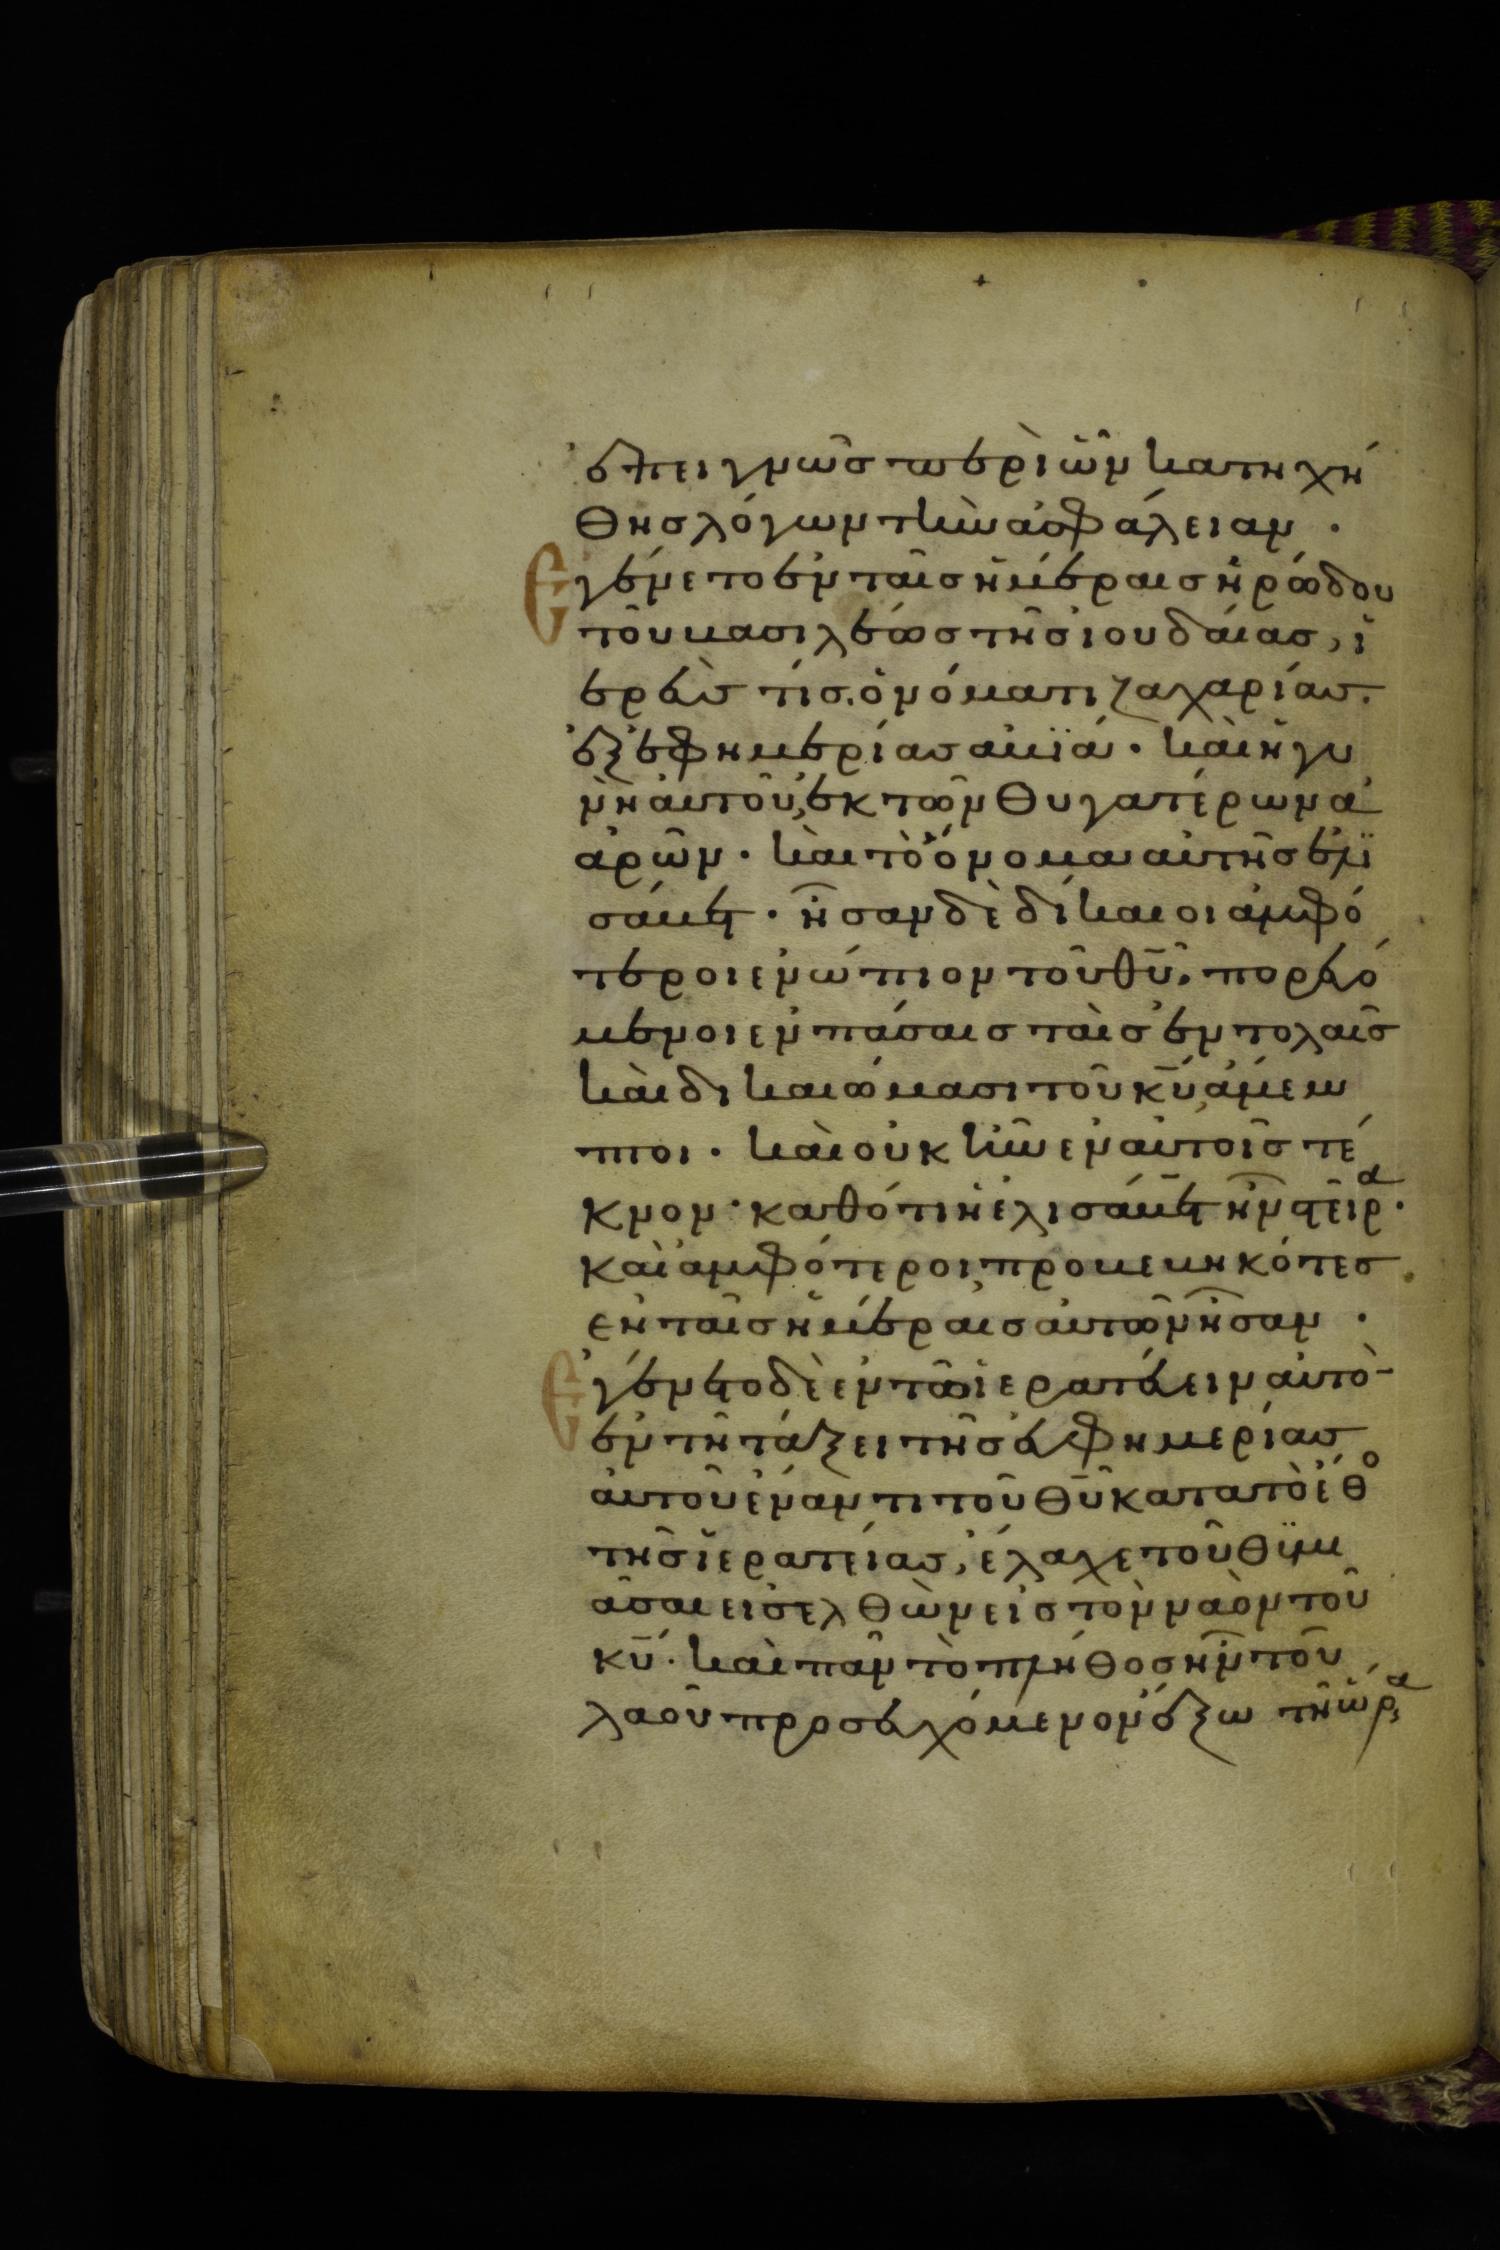 ἐπειγνῶσ περὶ ὧν κατηχή
θησ λόγων τὴν ἀσφάλειαν .
Εγένετο ἐν ταῖσ ἡμέραισ ἡρώδου
τοῦ βασιλέωσ τῆσ ἰουδαίασ, ἱ
ερεὺσ τίσ. ὀνόματι ζαχαρίασ.
ἐξ ἐφημερίασ ἀβϊά · καὶ ἡ γυ
νὴ ἀυτοῦ, ἐκ τῶν θυγατέρων ἀ
ἀρῶν · καὶ τὸ ὄνομα ἀυτῆσ ἐλϊ
σάβετ · ἦσαν δὲ δίκαιοι ἀμφό
τεροι ἐνώπιον τοῦ θῦ. πορευό
μενοι ἐν πάσαισ ταὶσ ἐντολαῖσ
καὶ δικαιώμασι τοῦ κῦ ἄμεμ
πτοι · καὶ οὐκ ἦν ἐν ἀυτοῖσ τέ
κνον · καθότι ἡ ἐλισάβετ ἦν στεῖρα ·
καὶ ἀμφότεροι προβεβηκότεσ
ἐν ταῖσ ἡμέραισ ἀυτῶν ἦσαν .
Εγένετο δὲ ἐν τῶ ἱερατεύειν ἀυτὸ-
ἐν τῆ τάξει τῆσ ἐφημερίασ
ἀυτοῦ ἐνάντι τοῦ θῦ κατα τὸ ἔθο
τῆσ ἱερατείασ, ἔλαχε τοῦ θϋμι
ᾶσαι εισελθὼν εἰσ τὸν ναὸν τοῦ
κῦ · καὶ πᾶν τὸ πλήθοσ ἦν τοῦ
λαοῦ προσευχόμενον ἔξω τῆ ὥρα